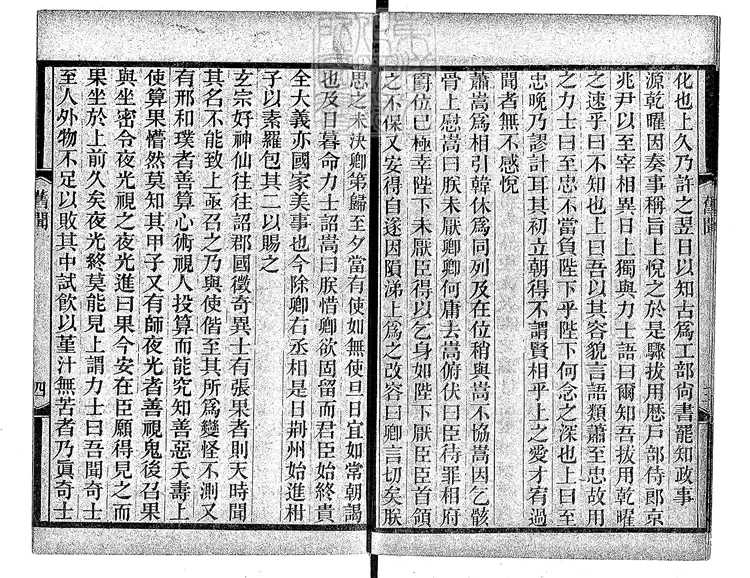 化也上久乃許之翌日以知古爲工部尚書罷知政事
源乾曜因奏事稱旨上悅之於是驟拔用歷戶部侍郎京
兆尹以至宰相異日上獨與力士語曰爾知吾拔用乾曜
之速乎曰不知也上曰吾以其容貌言語類蕭至忠故用
之力士曰至忠不當負陛下乎陛下何念之深也上曰至
忠晚乃謬計耳其初立朝得不謂賢相乎上之愛才宥過
聞者無不感悅
蕭嵩爲相引韓休爲同列及在位稍與嵩不協嵩因乞骸
骨上慰嵩曰朕未厭卿卿何庸去嵩俯伏曰臣待罪相府
爵位已極幸陛下未厭臣得以乞身如陛下厭臣臣首領
之不保又安得自遂因隕涕上爲之改容曰卿言切矣朕
思之未決卿第歸至夕當有使如無使旦日宜如常朝謁
也及日暮命力士詔嵩曰朕惜卿欲固留而君臣始終貴
全大義亦國家美事也今除卿右丞相是日荆州始進柑
子上以素羅包其二以賜之
玄宗好神仙往往詔郡國徵奇異士有張果者則天時聞
其名不能致上亟召之乃與使偕至其所爲變怪不測又
有邢和璞者善算心術視人投算而能究知善惡夭壽上
使算果懵然莫知其甲子又有師夜光者善視鬼後召果
與坐密令夜光視之夜光進曰果今安在臣願得見之而
果坐於上前久矣夜光終莫能見上謂力士曰吾聞奇士
至人外物不足以敗其中試飲以堇汁無苦者乃眞奇士
舊聞
四
舊聞